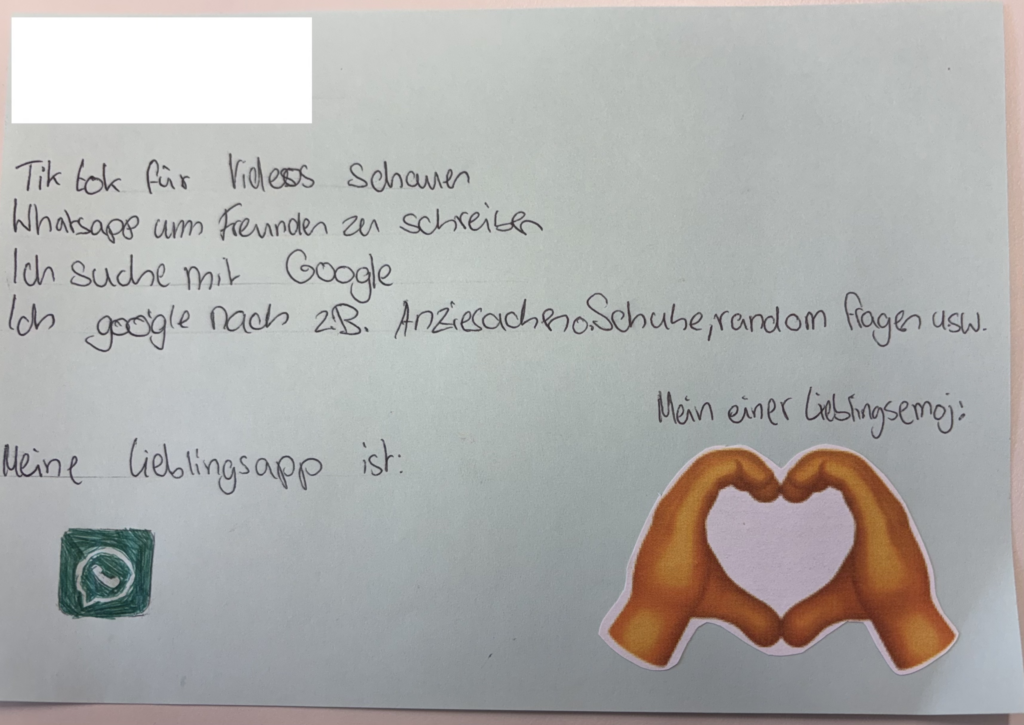 Tik tok für Videos schauen
Whatsapp um Freunden zu schreiben
Ich suche mit Google
Ich google nach z.B. Anziesachen o. Schuhe, random fragen usw.
Mein einer Lieblingsemoj:
Meine Lieblingsapp ist: